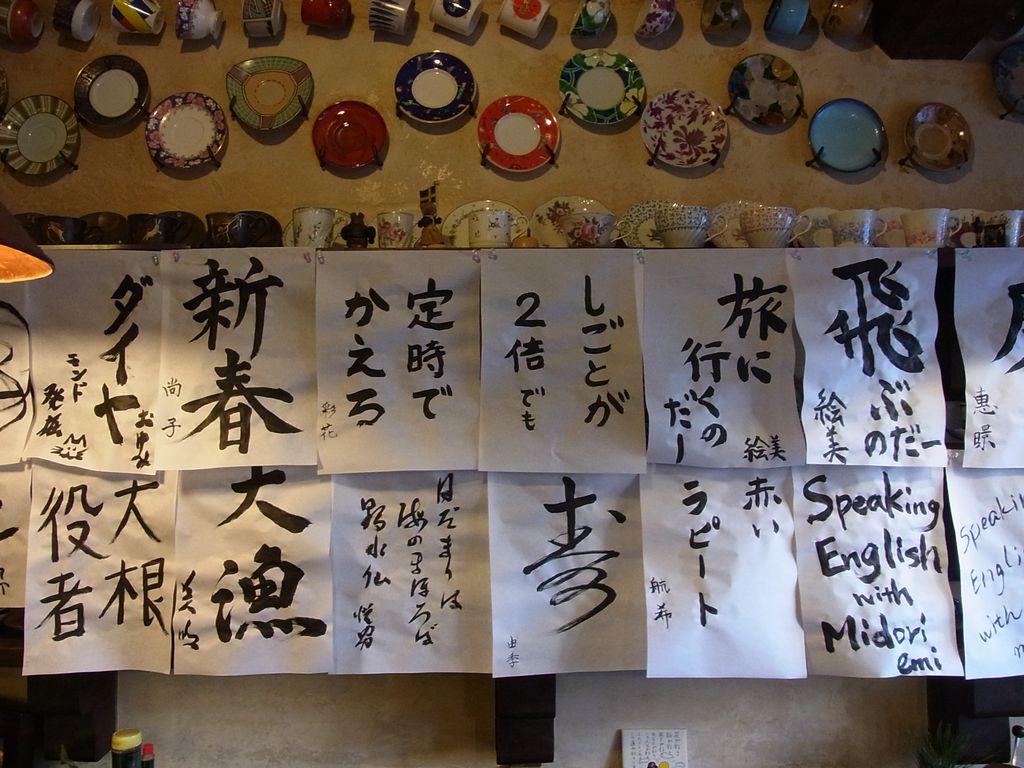 ダイヤ
モンド
発疲
おゆみ
新春
尚子
定時で
かえる
彩花
しごとが
2倍でも
旅に
行くの
だー
絵美
飛
ぶの
だー
絵美
惠暻
大根
役者
大漁
日だまりは
海のまほろば
野水仙
寿
由季
赤い
ラピート
航希
Speaking
English
with
Midori
emi
Speaki
Engli
with